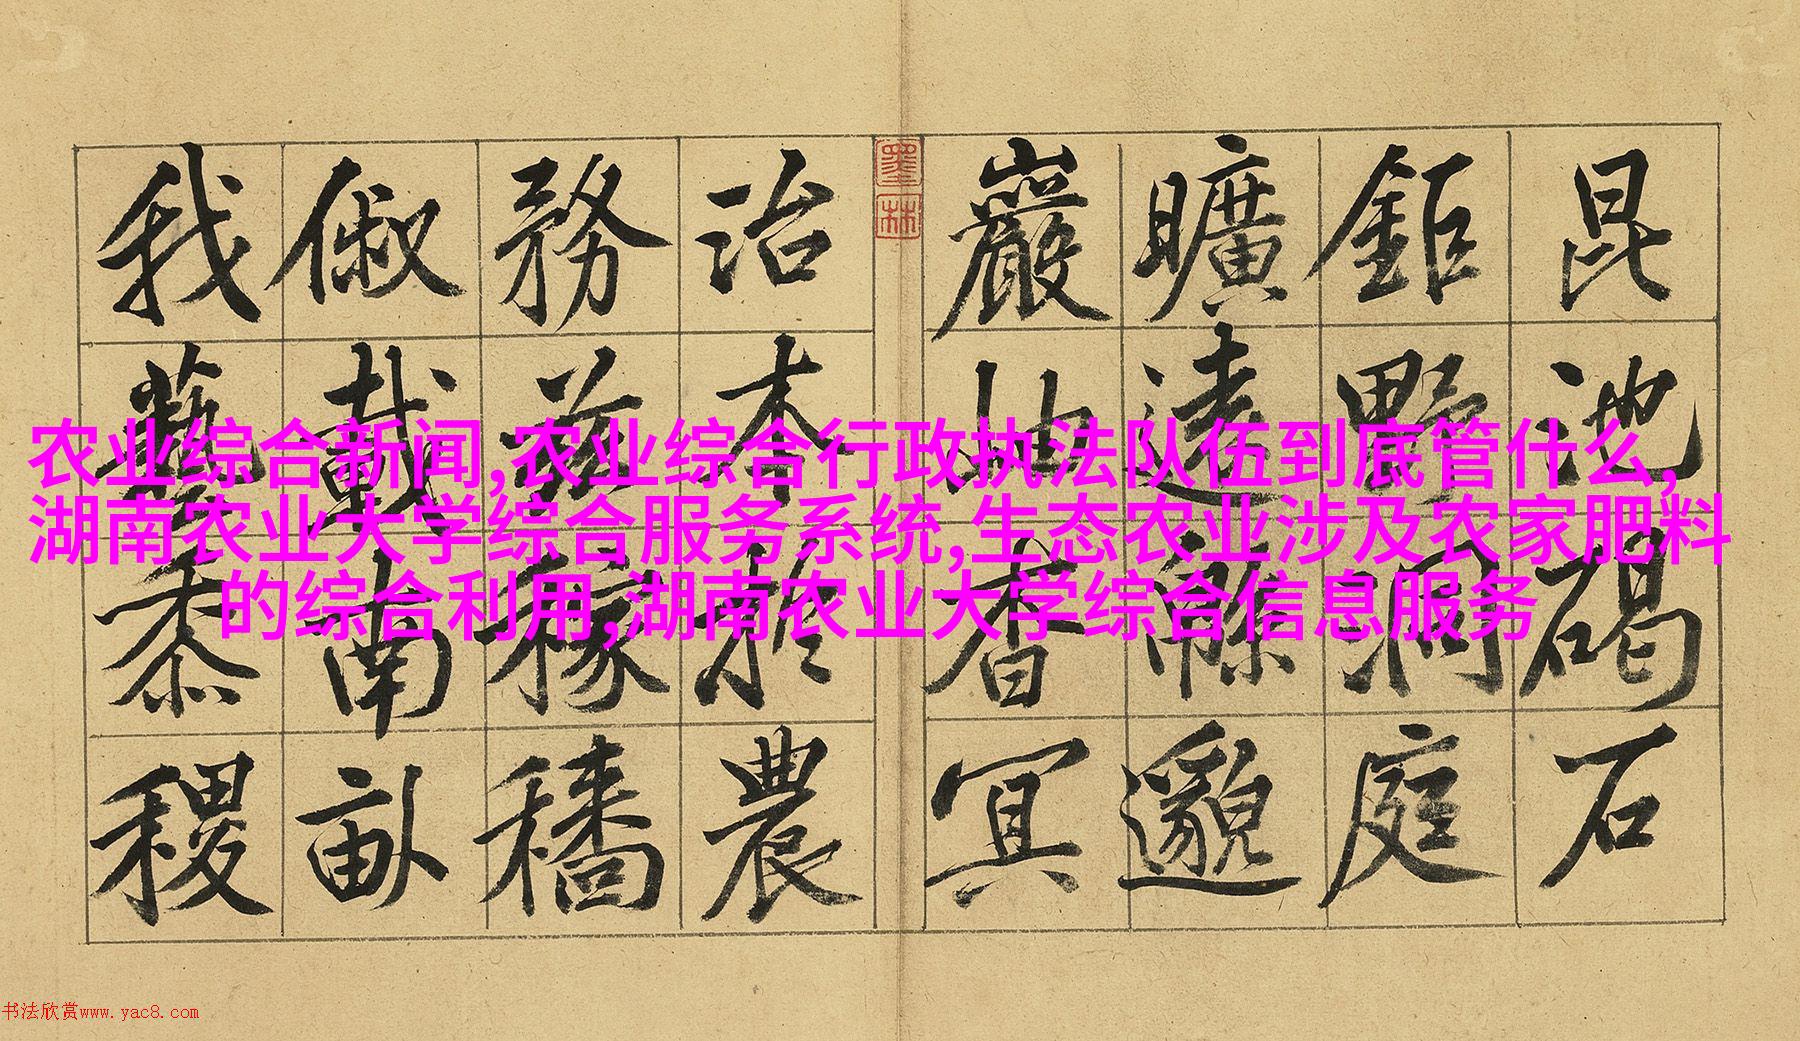 昆池碣石
鉅野洞庭
曠遠緜邈
巖岫杳冥
墨林
治本於農
務茲稼穡
俶載南畝
我藝黍稷
农业综合新闻,农业综合行政执法队伍到底管什么,
湖南农业大学综合服务系统,生态农业涉及农家肥料
的综合利用,湖南农业大学综合信息服务
书法欣赏www.yac8.com